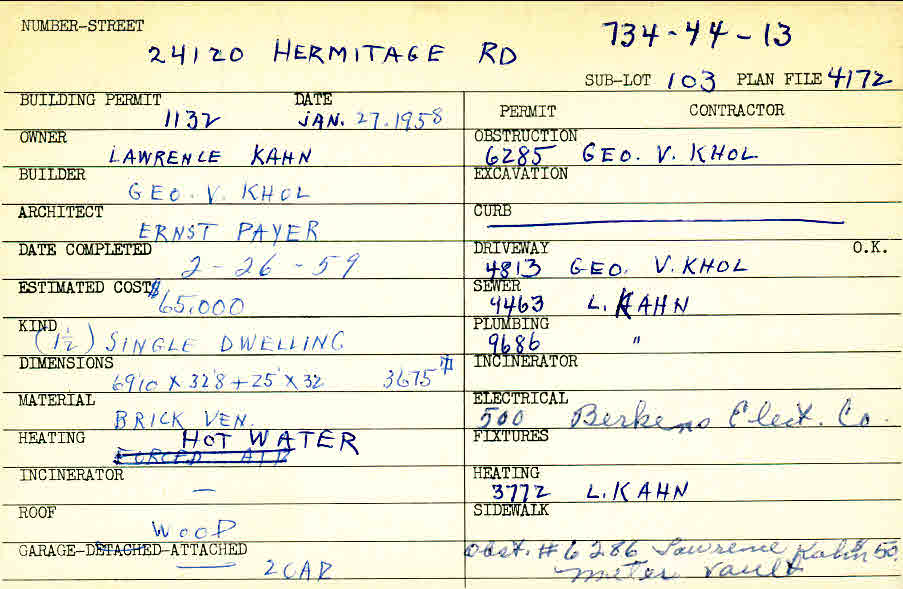 NUMBER-STREET
24120 HERMITAGE RD
734-44-13
SUB-LOT 103 PLAN FILE 4172
BUILDING PERMIT DATE
1132 JAN. 27.1958
OWNER
LAWRENCE KAHN
BUILDER
GEO. V. KHOL
ARCHITECT
ERNST PAYER
DATE COMPLETED
2-26-59
ESTIMATED COST $
65.000
KIND
(1½) SINGLE DWELLING
DIMENSIONS
6910 X 328 + 25' X 32 3675
MATERIAL
BRICK VEN.
HEATING HOT WATER
FORCED AIR
INCINERATOR
—
ROOF
WOOD
GARAGE-DETACHED-ATTACHED
2 CAR
PERMIT CONTRACTOR
OBSTRUCTION
6285 GEO. V. KHOL
EXCAVATION
CURB
DRIVEWAY O.K.
4813 GEO. V. KHOL
SEWER
4463 L. KAHN
PLUMBING
9686 "
INCINERATOR
ELECTRICAL
500 Elect. Co.
FIXTURES
HEATING
3772 L. KAHN
SIDEWALK
Obst. #6286 Lawrence Kahn $50.
meter vault